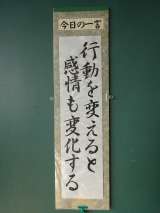 今日の一言
行動を変えると
感情も変化する